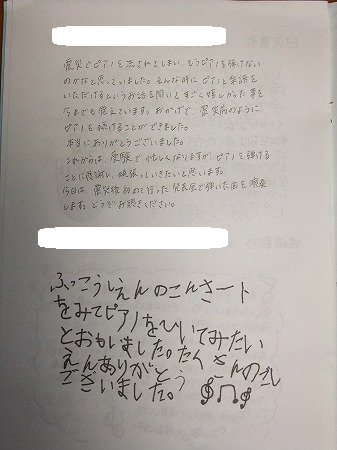 震災でピアノを流されてしまい、もうピアノを弾けない
のかなと思っていました。そんな時に ピアノと楽譜を
いただけるというお話を聞いてすごく嬉しかった事を
今までも覚えています。おかげで、震災前のように
ピアノを続けることができました。
本当にありがとうございました。
これからは、受験で忙しくなりますが、ピアノを弾ける
ことに感謝し、頑張っていきたいと思います。
今日は、震災後初めて行った発表会で弾いた曲を演奏
します。どうぞお聴きください。
ふっこうしえんのこんさート
をみてピアノをひいてみたい
とおもいました。たくさんのし
えんありがとう
ございました。